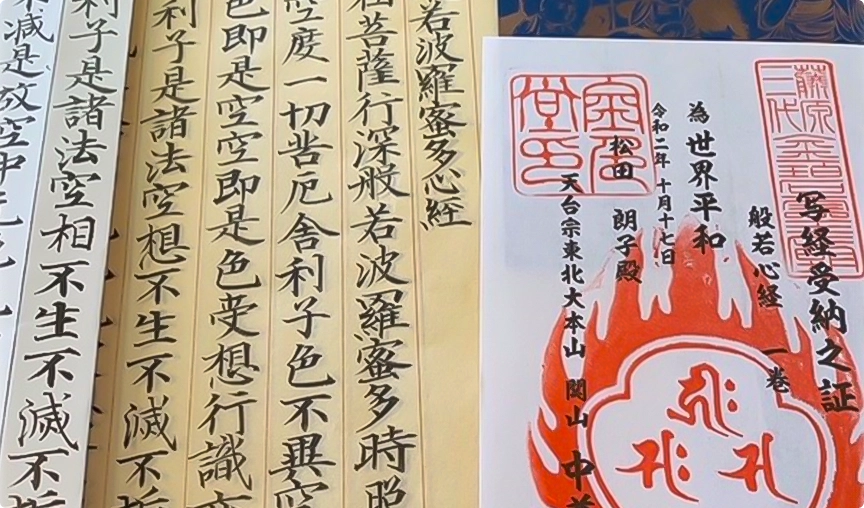 写経受納之証
般若心経 一巻
為 世界平和
令和二年 十月十七日
松田 朗子殿
天台宗東北大本山 関山 中
藤原三代
金色堂印
若波羅蜜多心経
在菩薩行深般若波羅蜜多時照
空度一切苦厄舎利子色不異空
色即是空空即是色受想行識亦
利子是諸法空想不生不滅不垢
利子是諸法空相不生不滅不垢
減是故空中